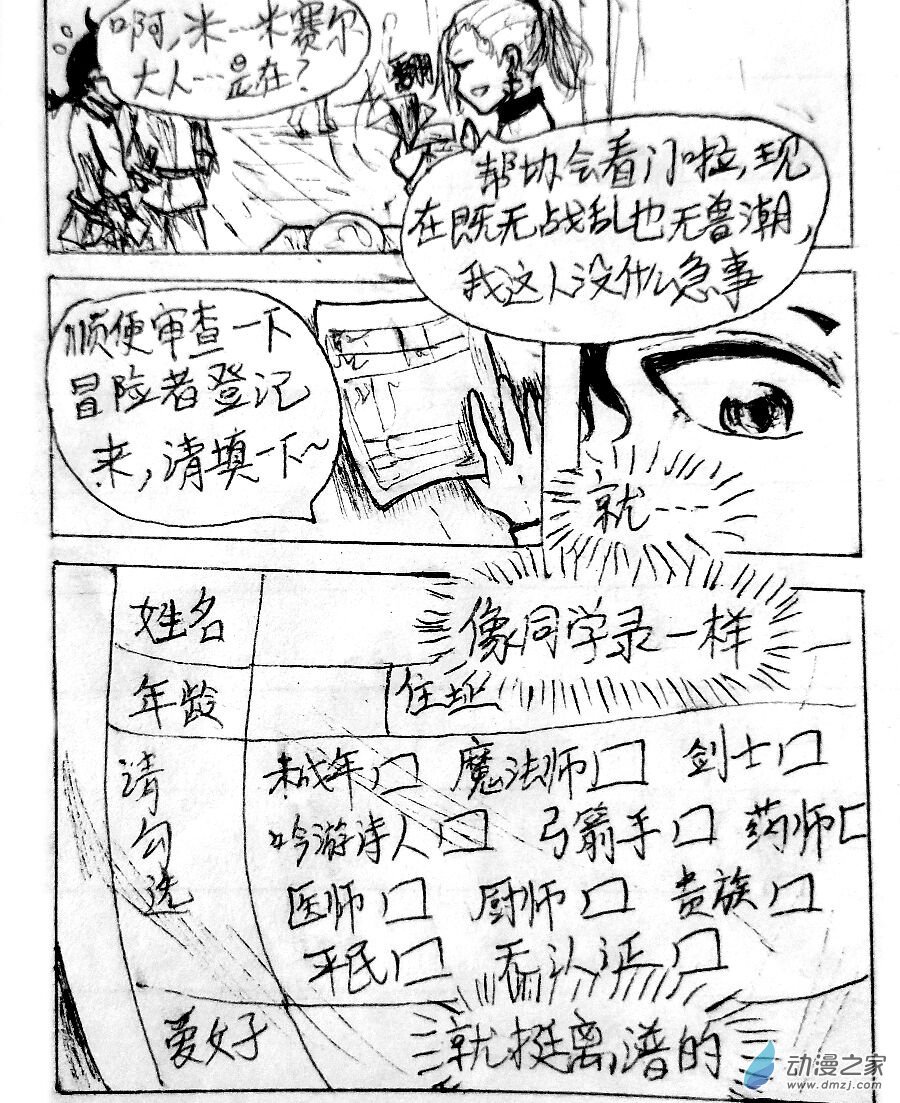 啊,米…米赛尔
大人…是在?
翻
帮协会看门啦,现
在既无战乱也无兽潮,
我这人没什么急事
顺便审查一下
冒险者登记
来,请填一下~
就……
像同学录一样
姓名
年龄
住址
请勾选
未成年口 魔法师口 剑士口
吟游诗人口 弓箭手口 药师口
医师口 厨师口 贵族口
平民口
爱好
就挺离谱的
动漫之家
www.dmzj.com